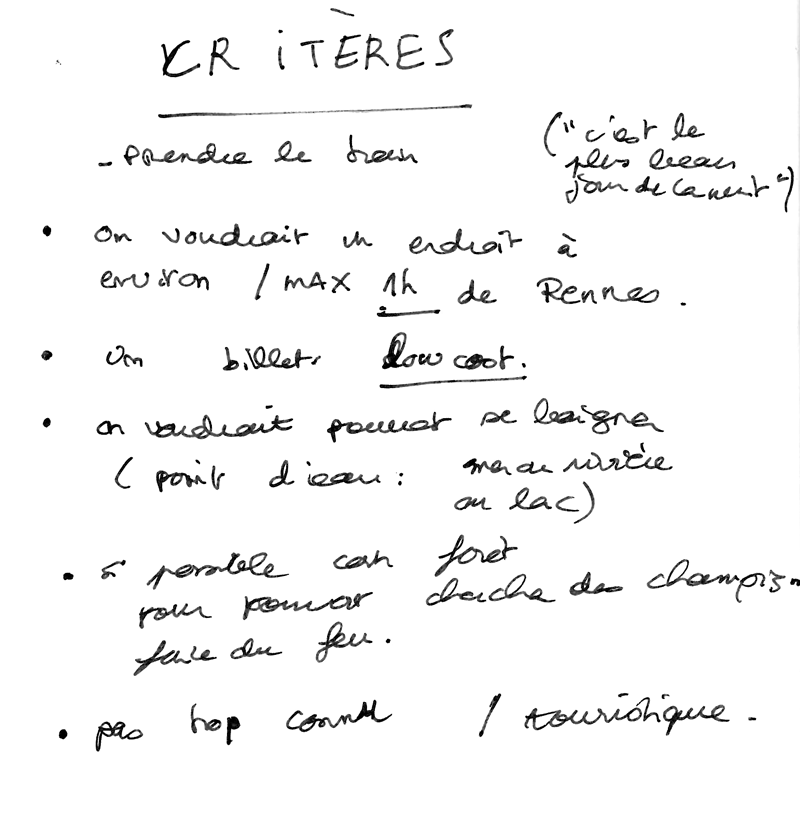 CRITÈRES
- Prendre le train
("c'est le
plus beau
jour de la nuit")
• on voudrait un endroit à
environ / MAX 1h de Rennes.
• Un billet low cost.
• on voudrait pouvoir se baigner
( point d'eau : mer ou rivière
ou lac)
• si possible coin forêt
pour pouvoir chercher des champis
faire du feu.
• pas trop connu / touristique.